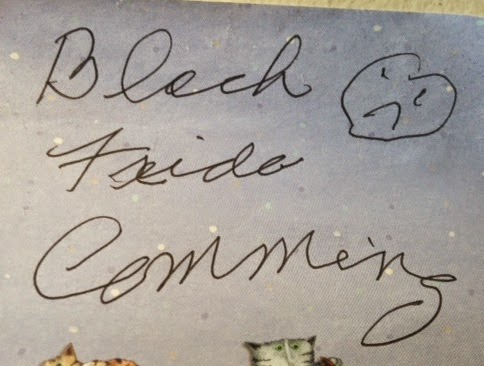 Black
Frida
Comming